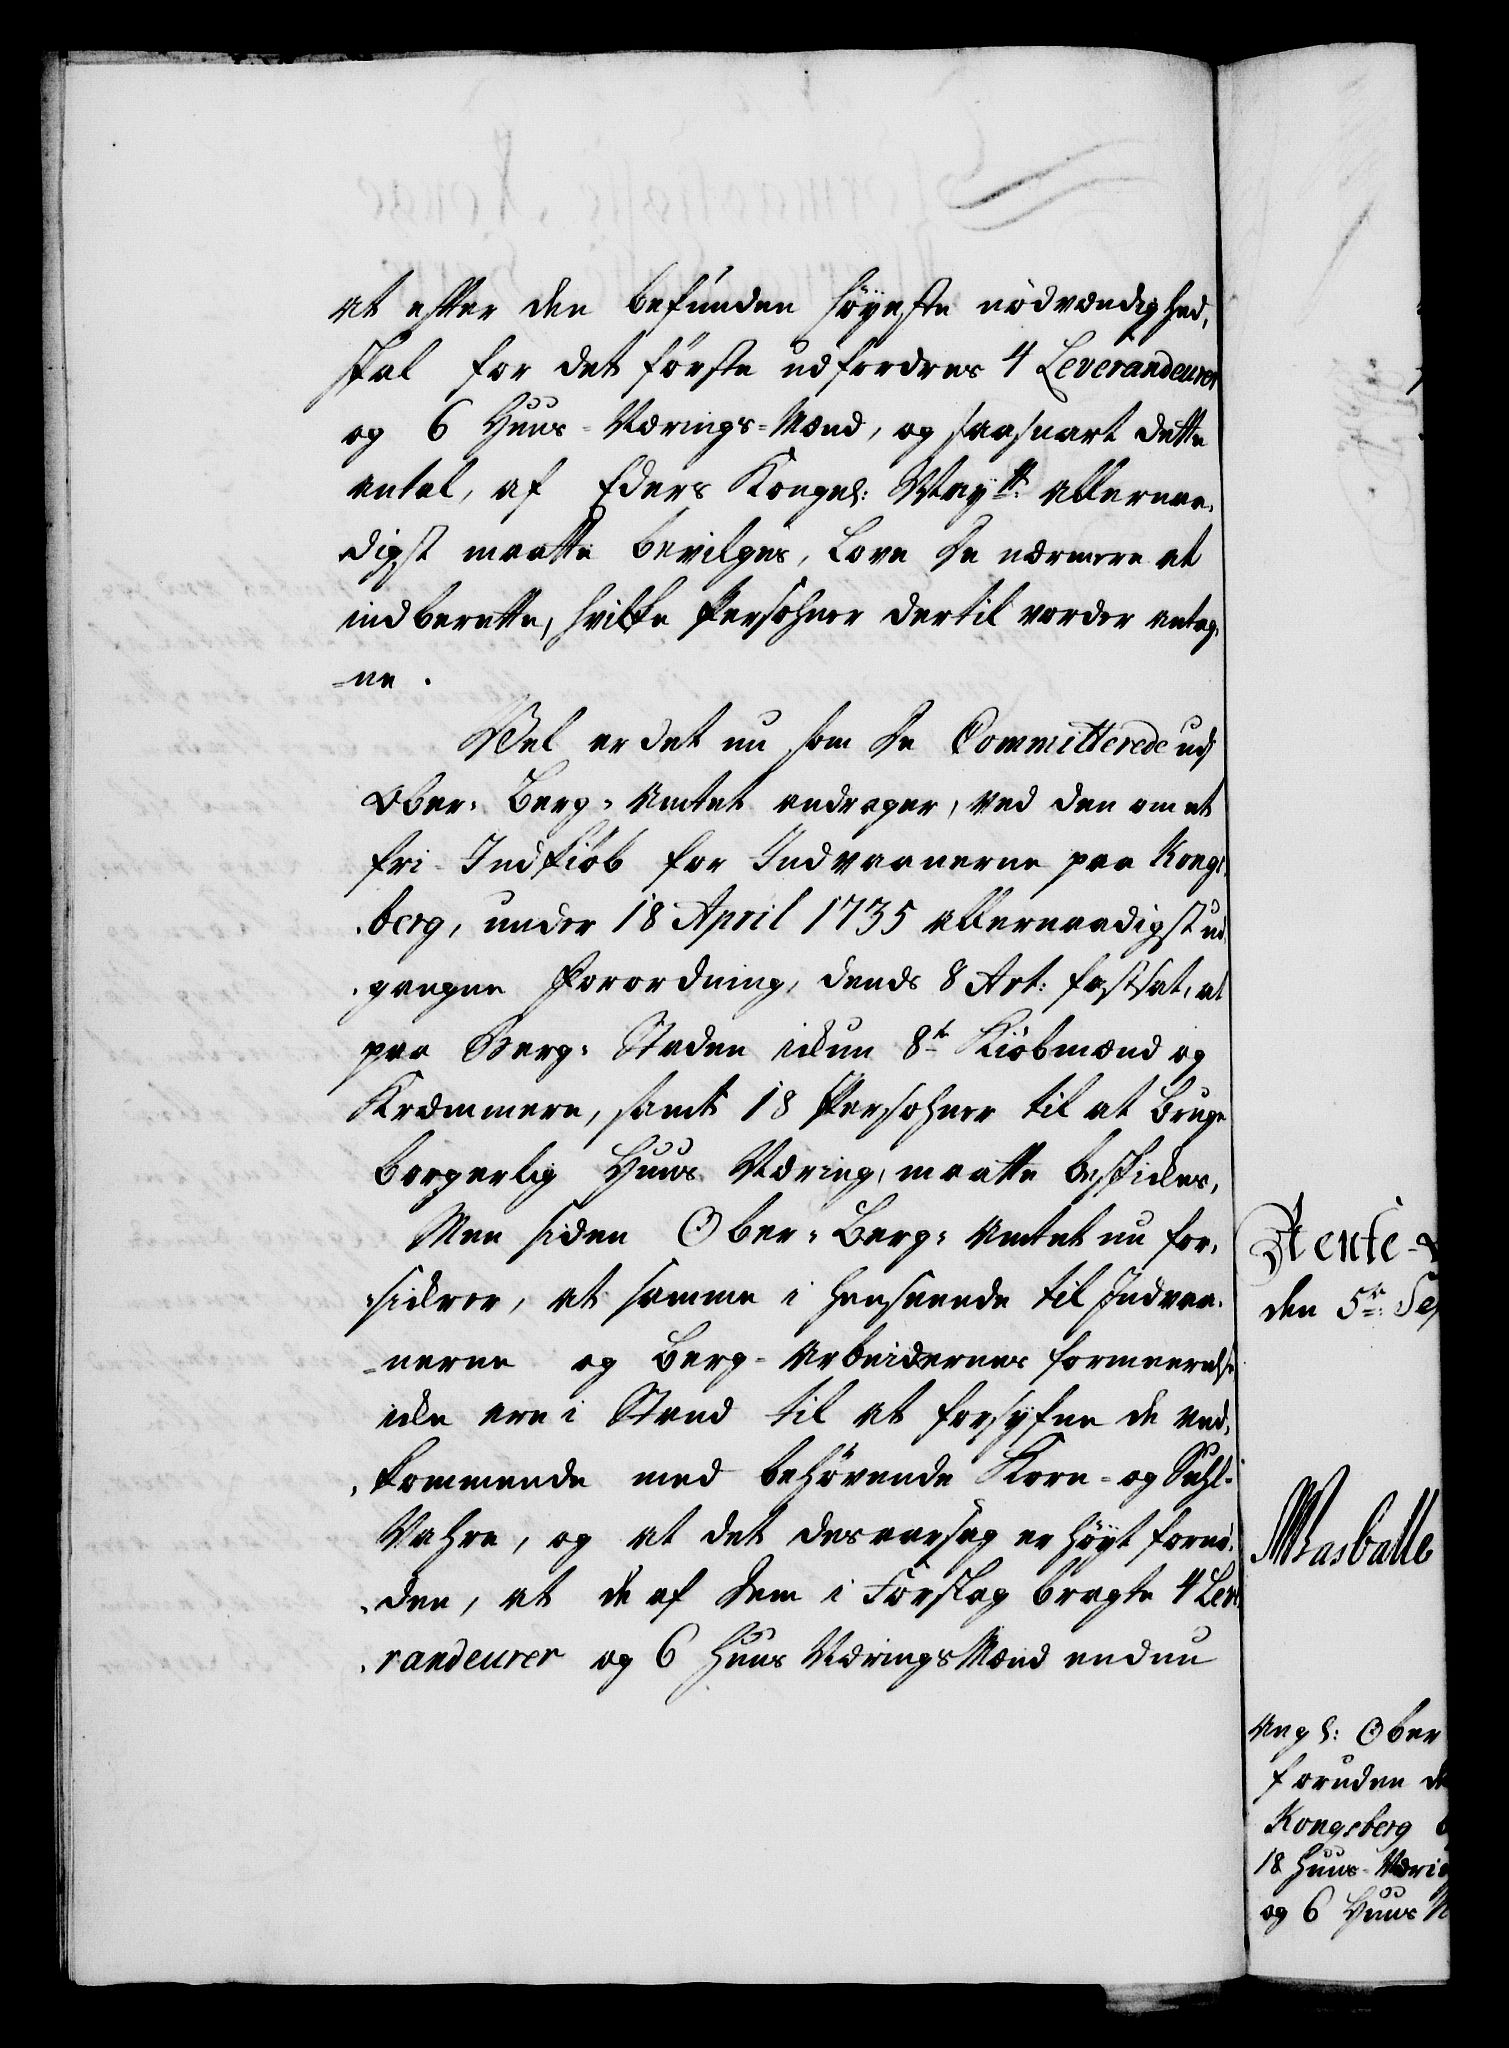 at efter den befunden høyeste nødvendighed,
skal for det første udfordres 4 Leverandeurer
og 6 Huus-Nærings-Mænd, og saasnart dette
antal, af Eders Kongel: Maytt: allernaa-
digst maatte bevilges, love de nærmere at
indberette, hvilke Persohner dertil vorder antag-
-ne.
Vel er det nu som de Committerede ud
Ober-Berg-Amtet andrager, ved den om et
fri Indkiøb for Indvaanerne paa Kongs-
berg, under 18 April 1735 allernaadigst ud-
gangne Forordning, dends 8 Art: fastsat, at
paa Berg-Staden ickun 8te Kiøbmænd og
Kræmmere, samt 18 Persohner til at bruge
borgerlig Huus Næring, maatte beskickes,
Men siden Ober-Berg-Amtet nu for-
sickrer, at samme i henseende til Indvaa-
-nerne og Berg-Arbeidernes formeerelse
icke ere i Stand til at forsyfne de ved-
kommende med behøvende Korn- og Suhl-
Vahre, og at det desaarsag er høyt fornø-
den, at de af dem i Forslag bragte 4 Leve-
randeurer og 6 Huus Nærings Mænd endnu
Rente-
den 5te: Se
Angl: Ober
foruden de
Kongsberg
18 Huus-Næri
og 6 Huus N